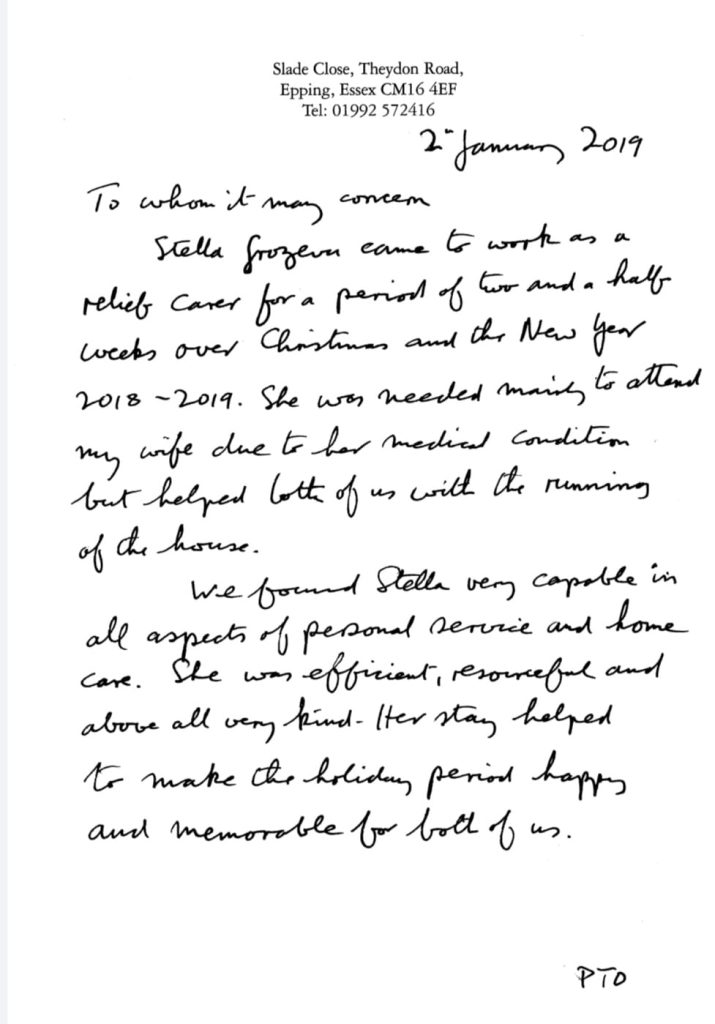 Slade Close, Theydon Road,
Epping, Essex CM16 4EF
Tel: 01992 572416
2nd January 2019
To whom it may concern
Stella Grozeva came to work as a
relief carer for a period of two and a half
weeks over Christmas and the New Year
2018 - 2019. She was needed mainly to attend
my wife due to her medical condition
but helped both of us with the running
of the house.
We found Stella very capable in
all aspects of personal service and home
care. She was efficient, resourceful and
above all very kind. Her stay helped
to make the holiday period happy
and memorable for both of us.
PTO